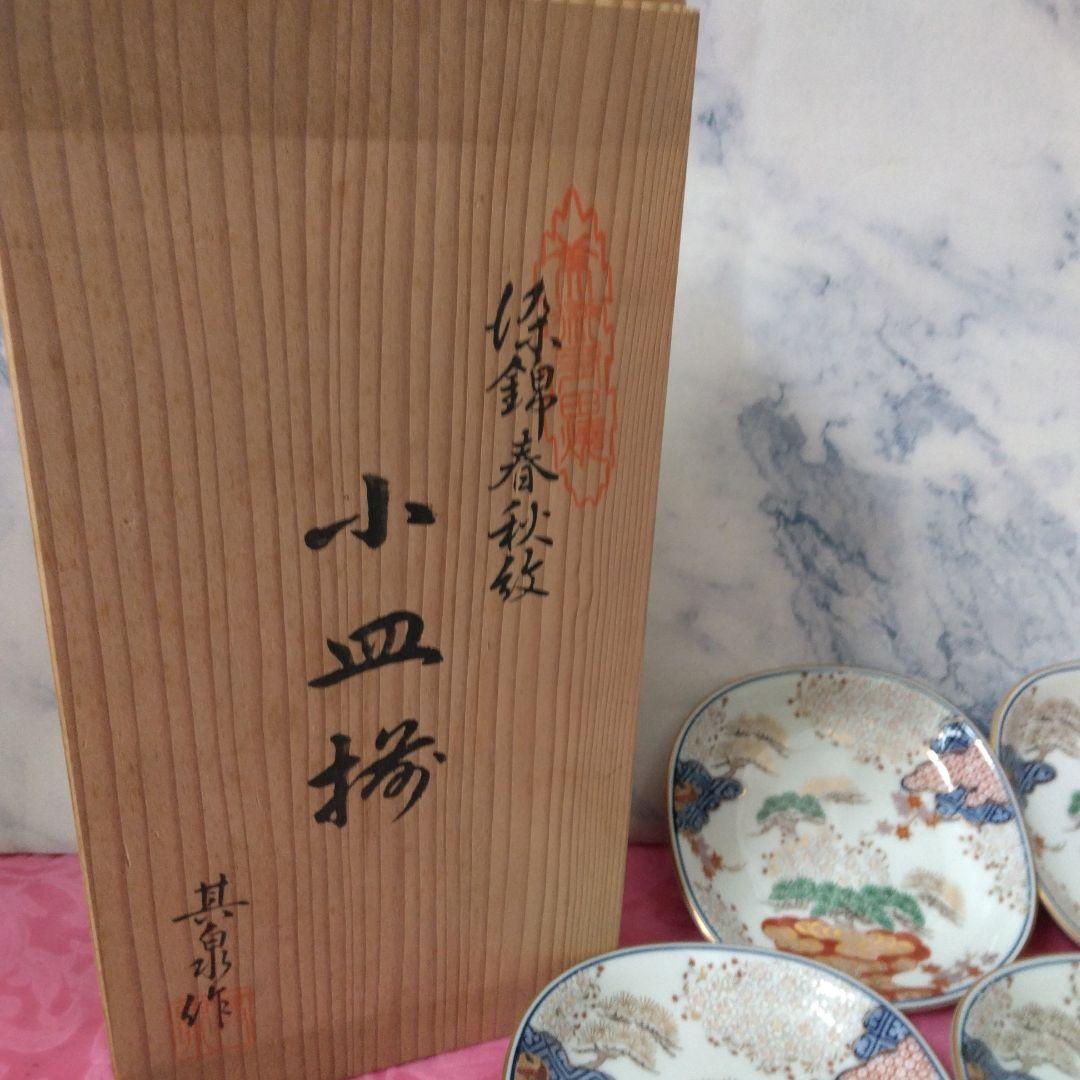 染錦春秋紋
小皿揃
其泉作